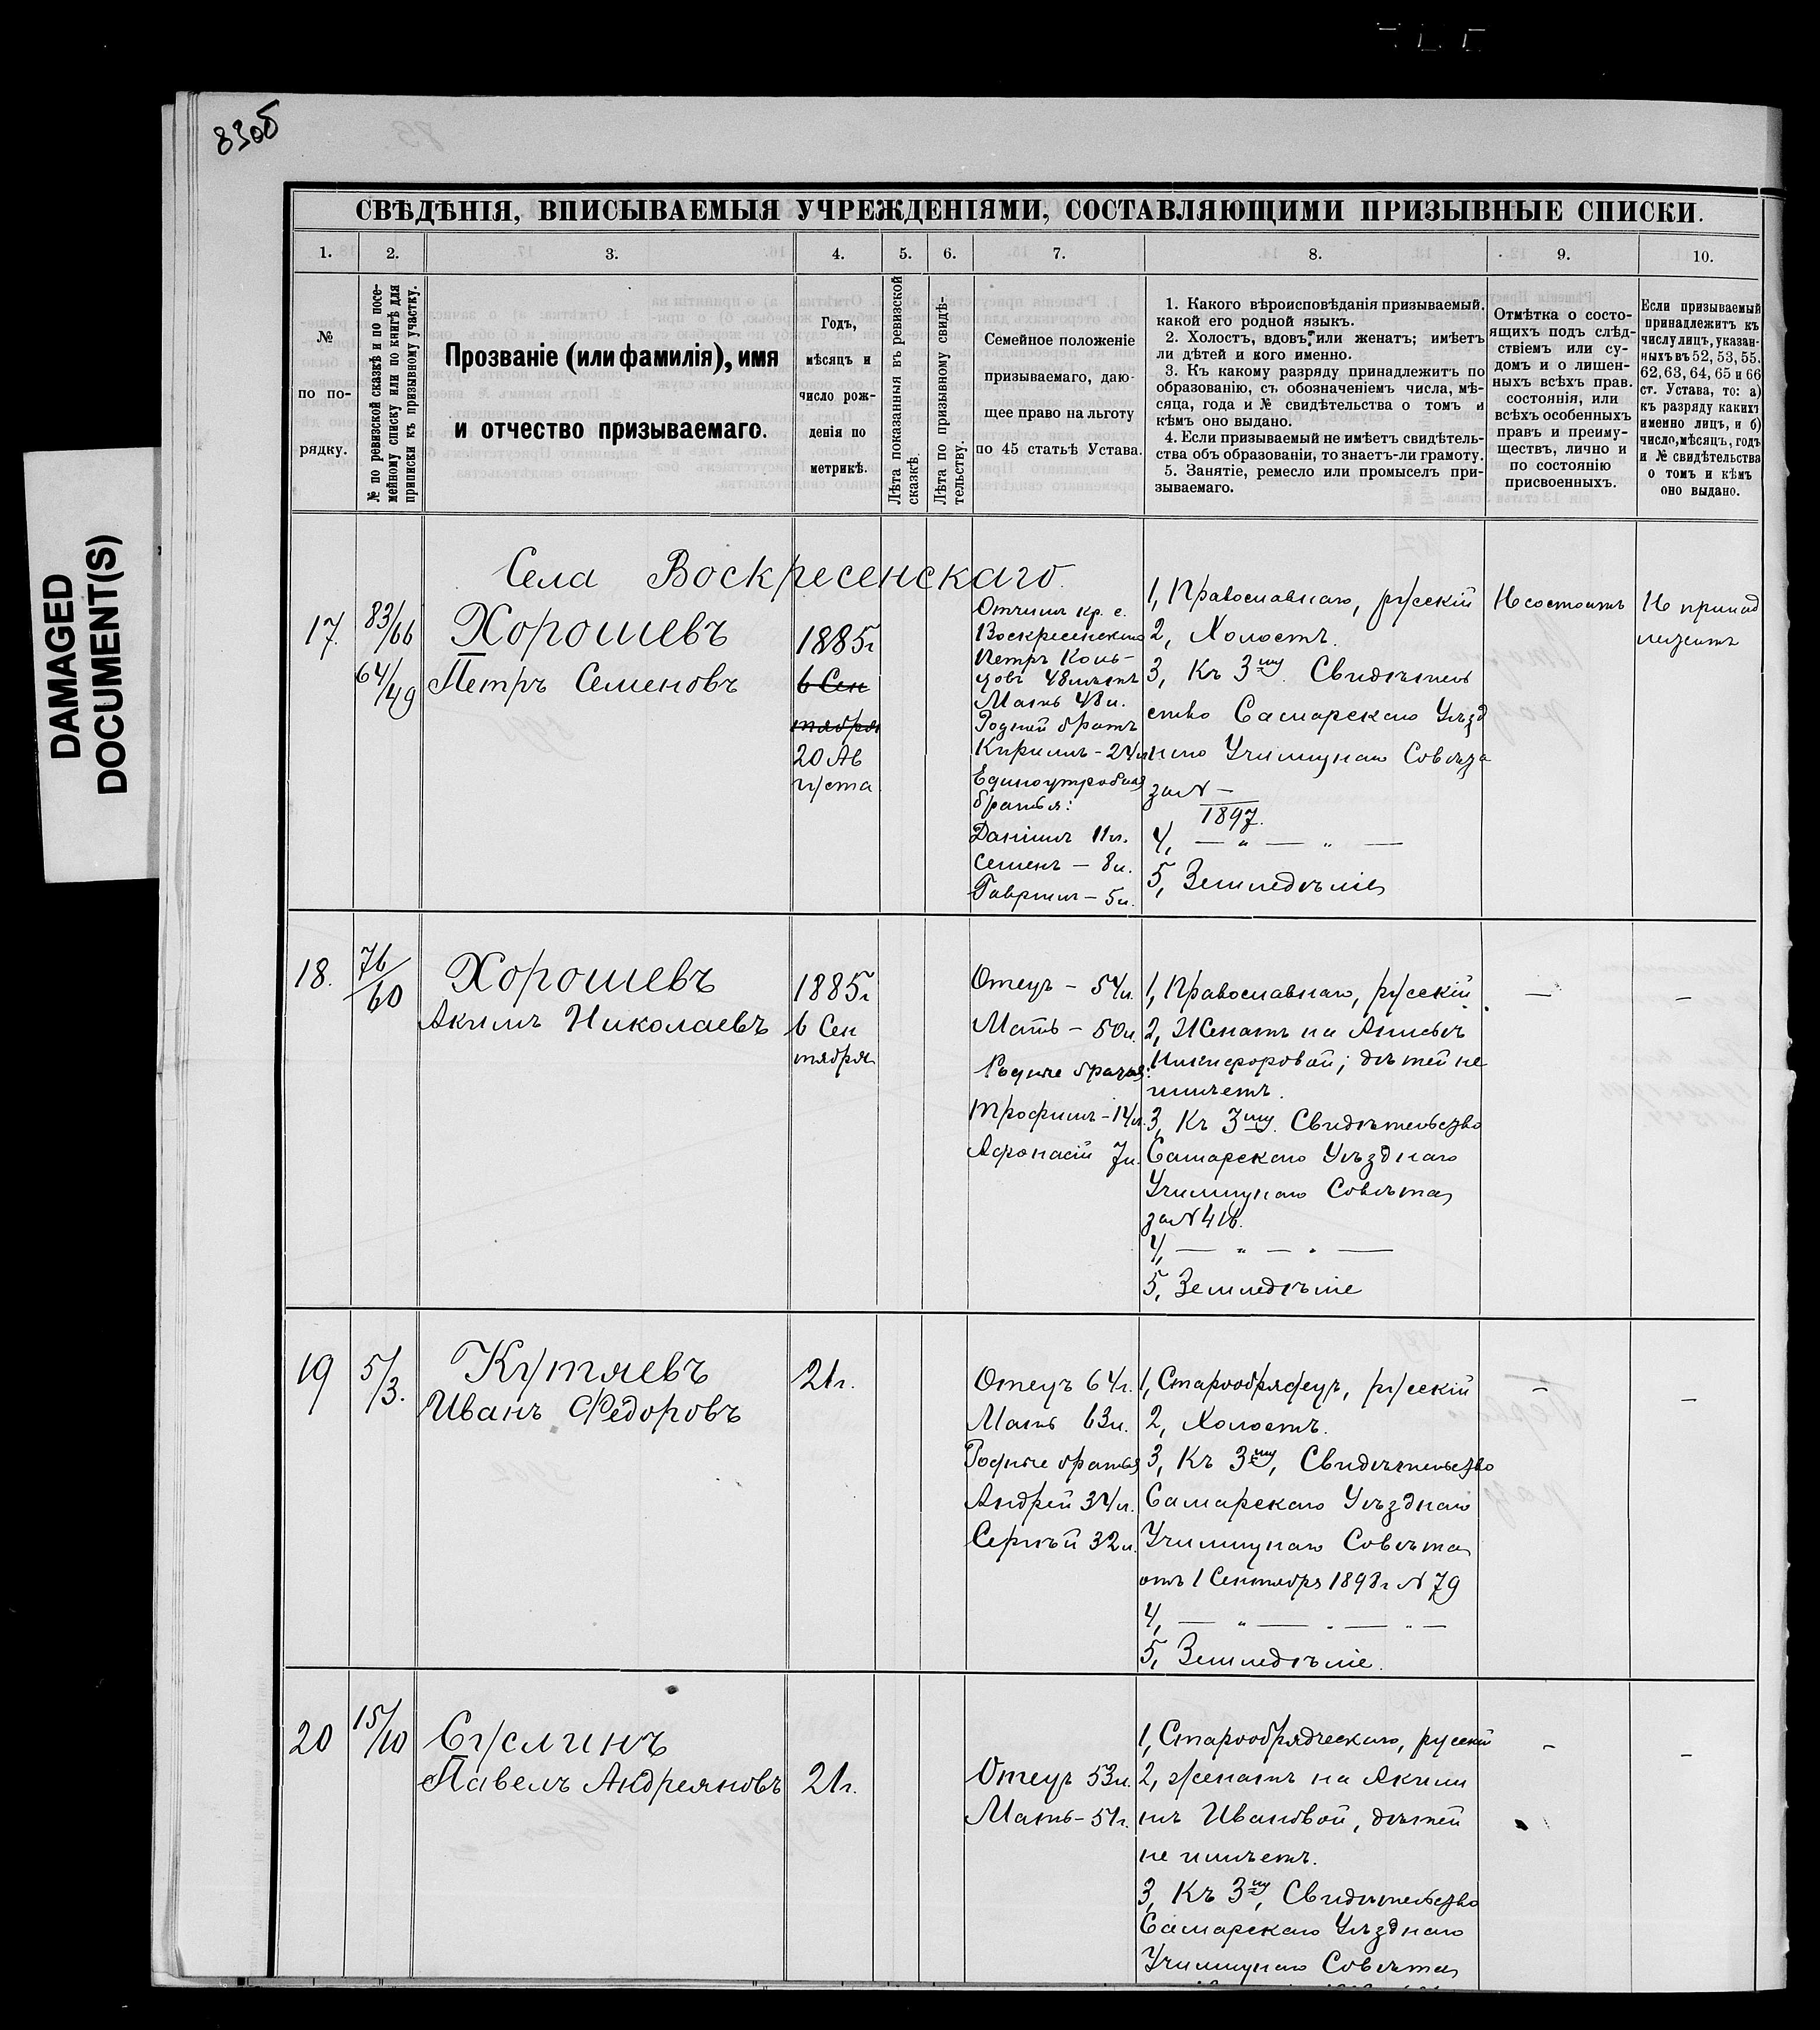 83об
DAMAGED
DOCUMENT(S)
СВѢДѢНІЯ, ВПИСЫВАЕМЫЯ УЧРЕЖДЕНІЯМИ, СОСТАВЛЯЮЩИМИ ПРИЗЫВНЫЕ СПИСКИ.
1. 2. 3. 4. 5. 6. 7. 8. 9. 10.
№
по по-
рядку.
№ по ревизской сказкѣ и по посе-
мейному списку или по книгѣ для
приписки къ призывному участку.
Прозваніе (или фамилія), имя
и отчество призываемаго.
Годъ,
мѣсяцъ и
число рож-
денія по
метрикѣ.
Лѣта показанныя въ ревизской
сказкѣ.
Лѣта по призывному свидѣ-
тельству.
Семейное положеніе
призываемаго, даю-
щее право на льготу
по 45 статьѣ Устава.
1. Какого вѣроисповѣданія призываемый,
какой его родной языкъ.
2. Холостъ, вдовъ, или женатъ; имѣетъ
ли дѣтей и кого именно.
3. Къ какому разряду принадлежитъ по
образованію, съ обозначеніемъ числа, мѣ-
сяца, года и № свидѣтельства о томъ и
кѣмъ оно выдано.
4. Если призываемый не имѣетъ свидѣтель-
ства объ образованіи, то знаетъ-ли грамоту.
5. Занятіе, ремесло или промыселъ при-
зываемаго.
Отмѣтка о состо-
ящихъ подъ слѣд-
ствіемъ или су-
домъ и о лишен-
ныхъ всѣхъ прав.
состоянія, или
всѣхъ особенныхъ
правъ и преиму-
ществъ, лично и
по состоянію
присвоенныхъ.
Если призываемый
принадлежитъ къ
числу лицъ, указан-
ныхъ въ 52, 53, 55,
62, 63, 64, 65 и 66
ст. Устава, то: а)
къ разряду какихъ
именно лицъ, и б)
число, мѣсяцъ, годъ
и № свидѣтельства
о томъ и кѣмъ
оно выдано.
Села Воскресенскаго.
17.
83/66
64/49
Хорошевъ
Петръ Семеновъ
1885г
6 Сен
тября
20 Ав
густа
Отчимъ кр. с.
Воскресенскаго
Петръ Конь-
48 лѣтъ
Мать 48 л.
Родной братъ
Кирилъ - 24 л
Единоутробные
братья:
Даніилъ 11 л.
Семенъ - 8 л.
Гаврилъ - 5 л.
1, Православнаго, русскій
2, Холостъ.
3, Къ 3му. Свидѣтель
ство Самарскаго Уѣзд
наго Училищнаго Совѣта
за № —
1897.
4, — „ — „ —
5, Земледѣліе
Не состоитъ
Не принад
лежитъ
18.
76/60
Хорошевъ
Акимъ Николаевъ
1885г
6 Сен
тября
Отецъ - 54 л.
Мать - 50 л.
Родные братья:
Трофимъ - 14 л.
Афонасій 7 л.
1, Православнаго, русскій.
2, Женатъ на Анисьѣ
Никифоровой; дѣтей не
имѣетъ.
3, Къ 3му. Свидѣтельство
Самарскаго Уѣзднаго
Училищнаго Совѣта
за № 416.
4, — „ — „ —
5, Земледѣліе
—
—
19
5/3.
Кутяевъ
Иванъ Федоровъ
21 г.
Отецъ 64 г.
Мать 63 л.
Родные братья
Андрей 34 л.
Сергѣй 32 л.
1, Старообрядецъ, русскій
2, Холостъ.
3, Къ 3му, Свидѣтельство
Самарскаго Уѣзднаго
Училищнаго Совѣта
отъ 1 Сентября 1898 г № 79
4, — „ — „ — „ —
5, Земледѣліе.
—
—
20
15/10
Суслинъ
Павелъ Андреяновъ
21 г.
Отецъ 53 л.
Мать - 51 г.
1, Старообрядческаго, русскій
2, женатъ на Акили
нѣ Ивановой, дѣтей
не имѣетъ.
3, Къ 3му, Свидѣтельство
Самарскаго Уѣзднаго
Училищнаго Совѣта
—
—